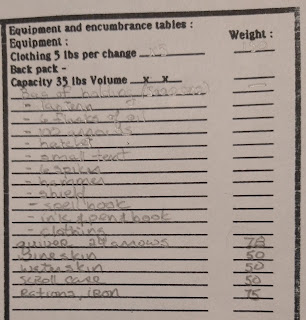 Equipment and encumbrance tables :
Equipment : Weight :
Clothing 5 lbs per change x5
Back pack -
Capacity 35 lbs Volume x x
Bag of holding
- lantern
- 6 flasks of oil
- 100 arrows
- hatchet
- small tent
- 6 spikes
- hammer
- shield
- spell book
- ink & pen & book
- clothing
quiver 24 arrows
wineskin 50
waterskin 50
scroll case 50
Rations, iron 75